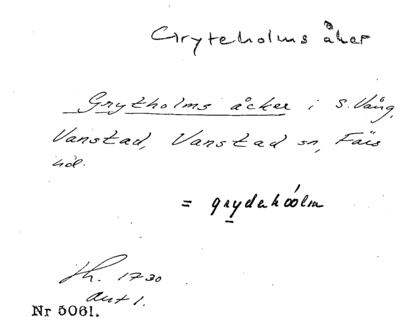 Gryteholms åker
Grytholms åcker i S. Vång,
Vanstad, Vanstad sn, Färs
hd.
= grydahóólm
Lh. 1730
akt 1.
Nr 5061.